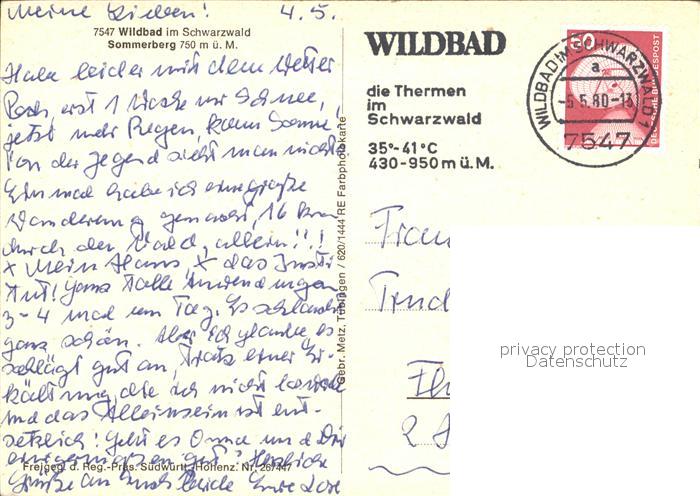 Meine Lieben! 4. 5.
7547 Wildbad im Schwarzwald
Sommerberg 750 m ü. M.
Habe leider mit dem Wetter
Pech, erst 1 Woche nur Schnee,
jetzt mehr Regen, kaum Sonne,
von der Gegend sieht man nichts
Einmal habe ich eine große
Wanderung gemacht, 16 km
durch den Wald, allein!!!
x Mein Haus x das Insti-
tut! Ganz tolle Anwendungen
3-4 mal am Tag. Es schlaucht
ganz schön. Aber ich glaube es
schlägt gut an, trotz einer Er-
kältung, die ich nicht
und das Alleinsein ist ent-
setzlich! Geht es Oma und Dir
einigermaßen gut? Herzliche
Freigeg. d. Reg.-Präs. Südwürtt./Hohenz. Nr. 267447
Grüße an Euch beide Eure
Gebr. Metz, Tübingen / 620/1444 RE Farbphotokarte
WILDBAD
die Thermen
im
Schwarzwald
35°-41°C
430-950 m ü. M.
WILDBAD IM SCHWARZWALD 1
a
-5.5.80-13
7547
DEUTSCHE BUNDESPOST
Frau
Trud
privacy protection
Datenschutz